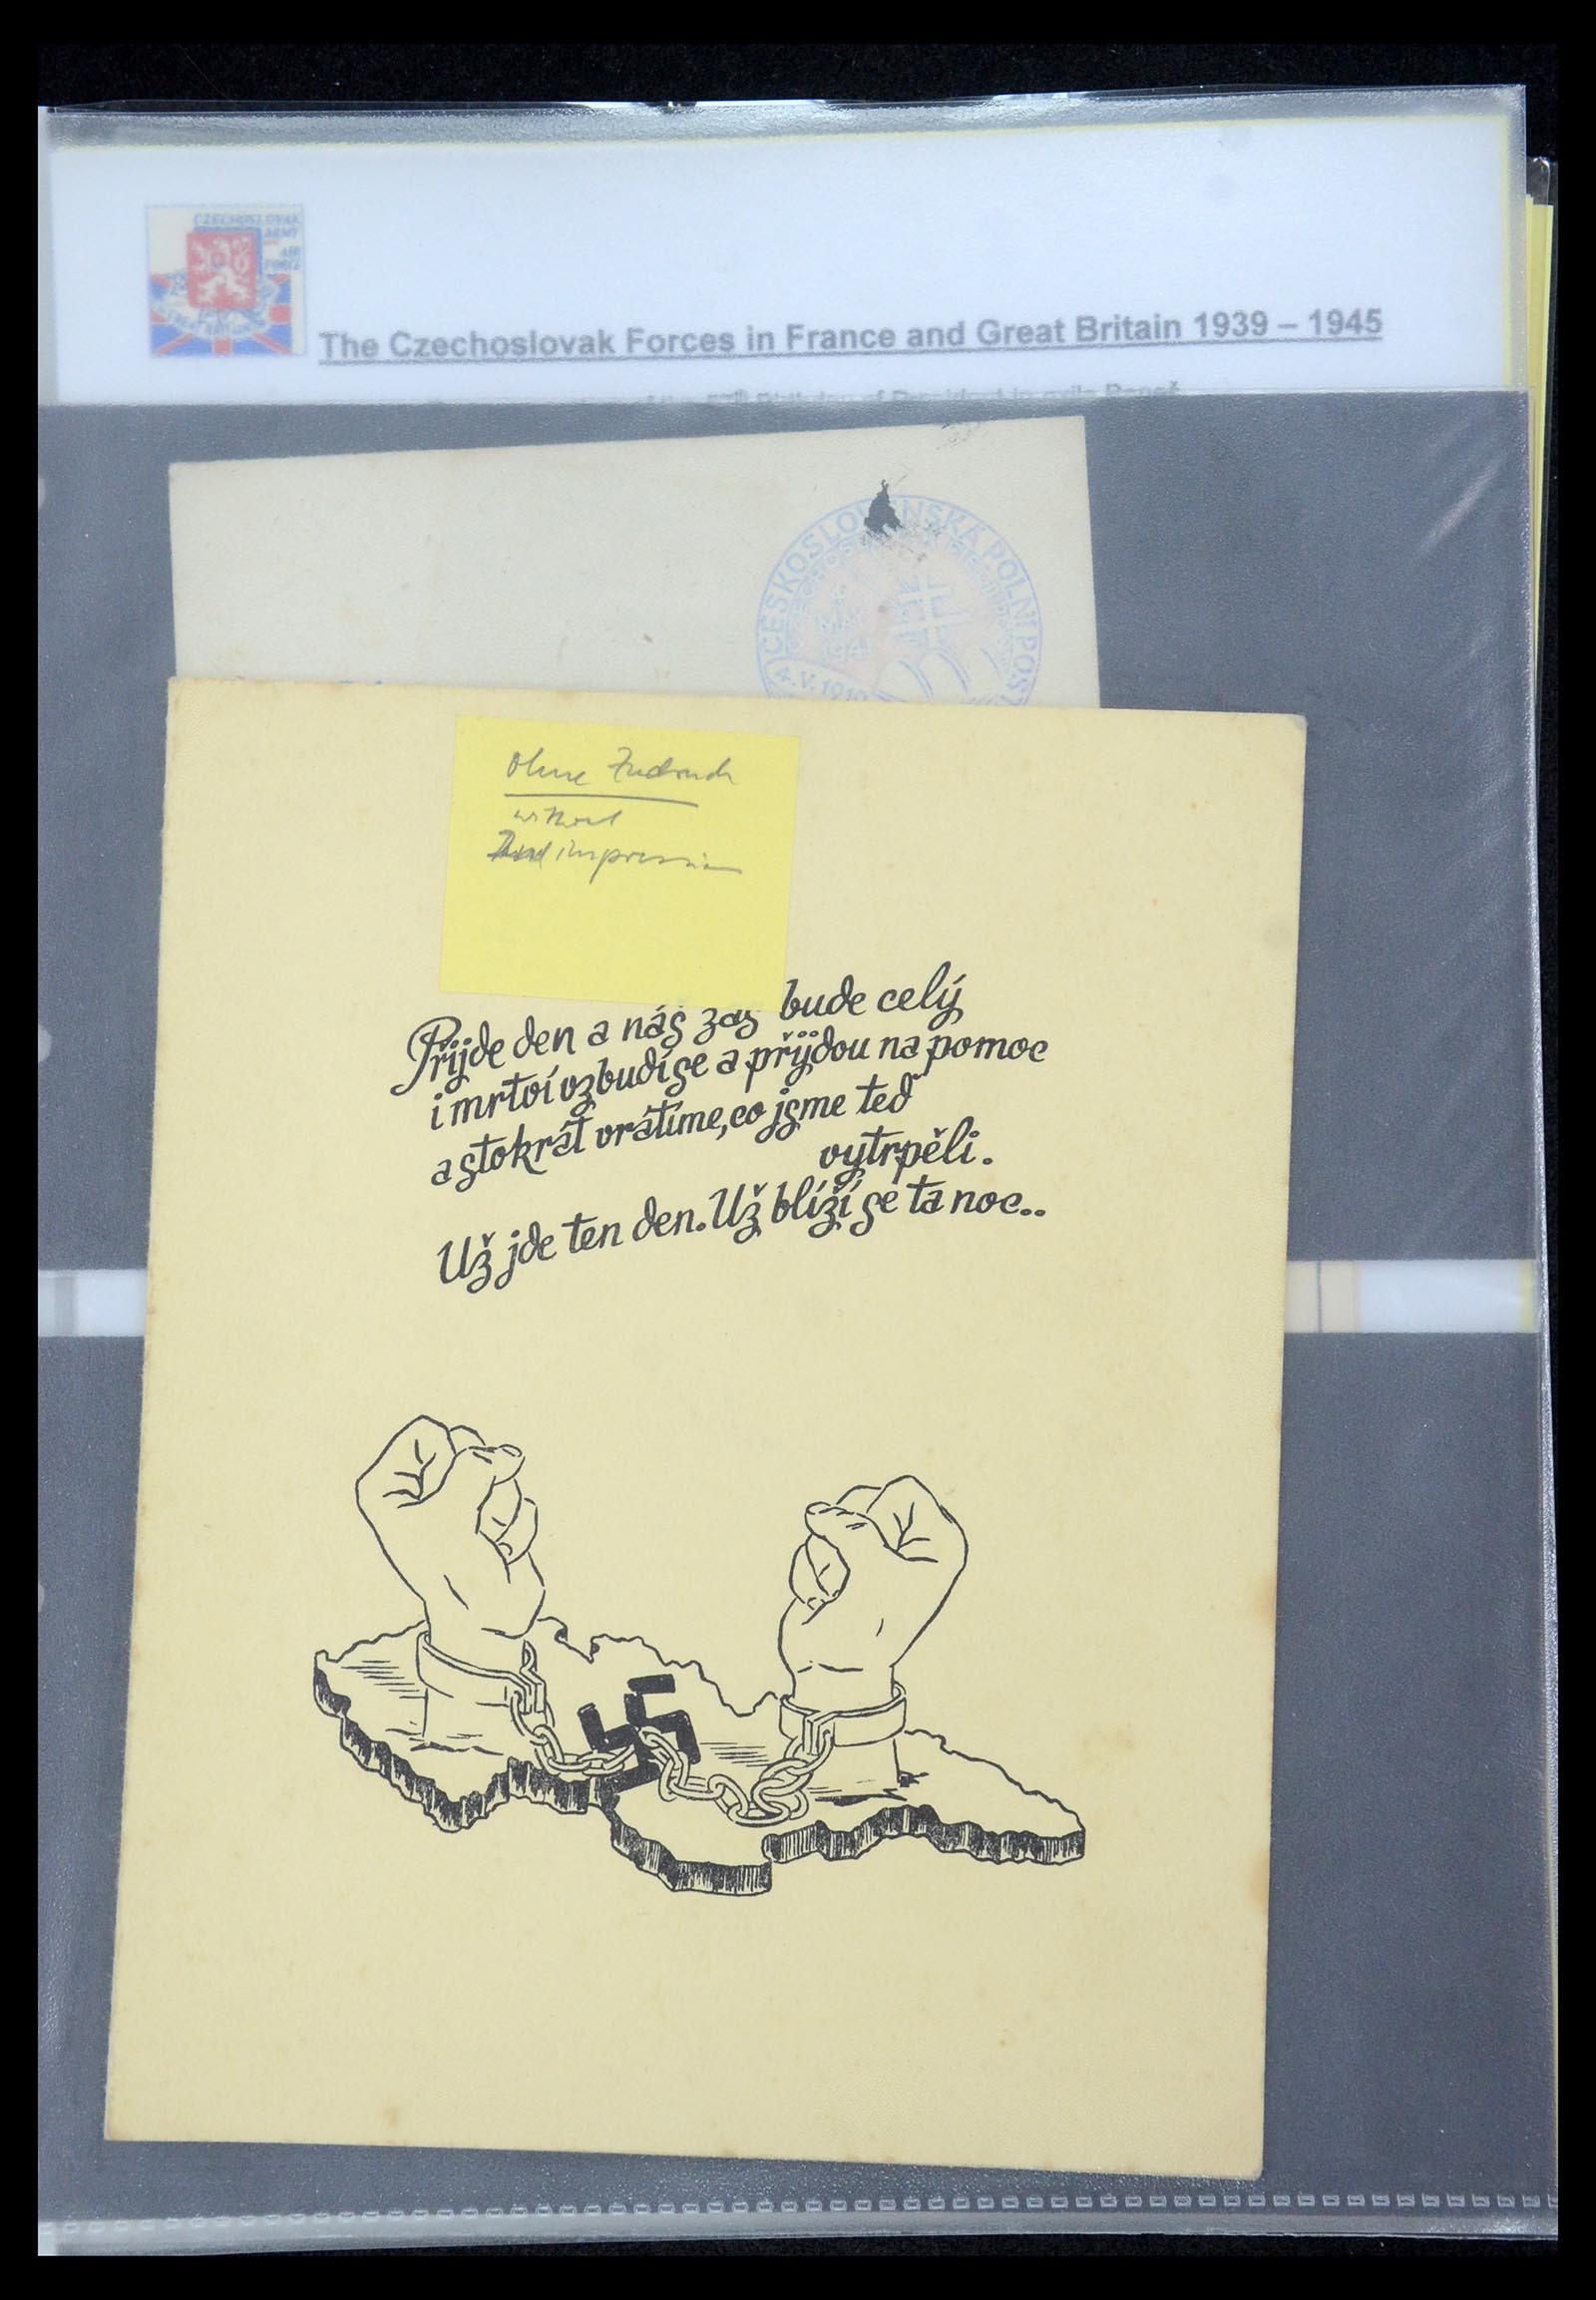 CZECHOSLOVAK
ARMY
AIR
FORCE
The Czechoslovak Forces in France and Great Britain 1939 – 1945
ČESKOSLOVENSKÁ POLNÍ POST
4
MAY
194
4.V.1919
Ohne Zudruck
without
impression
Přijde den a náš zas bude celý
i mrtví vzbudí se a přijdou na pomoc
a stokrát vrátíme, co jsme teď
vytrpěli.
Už jde ten den. Už blíží se ta noc..